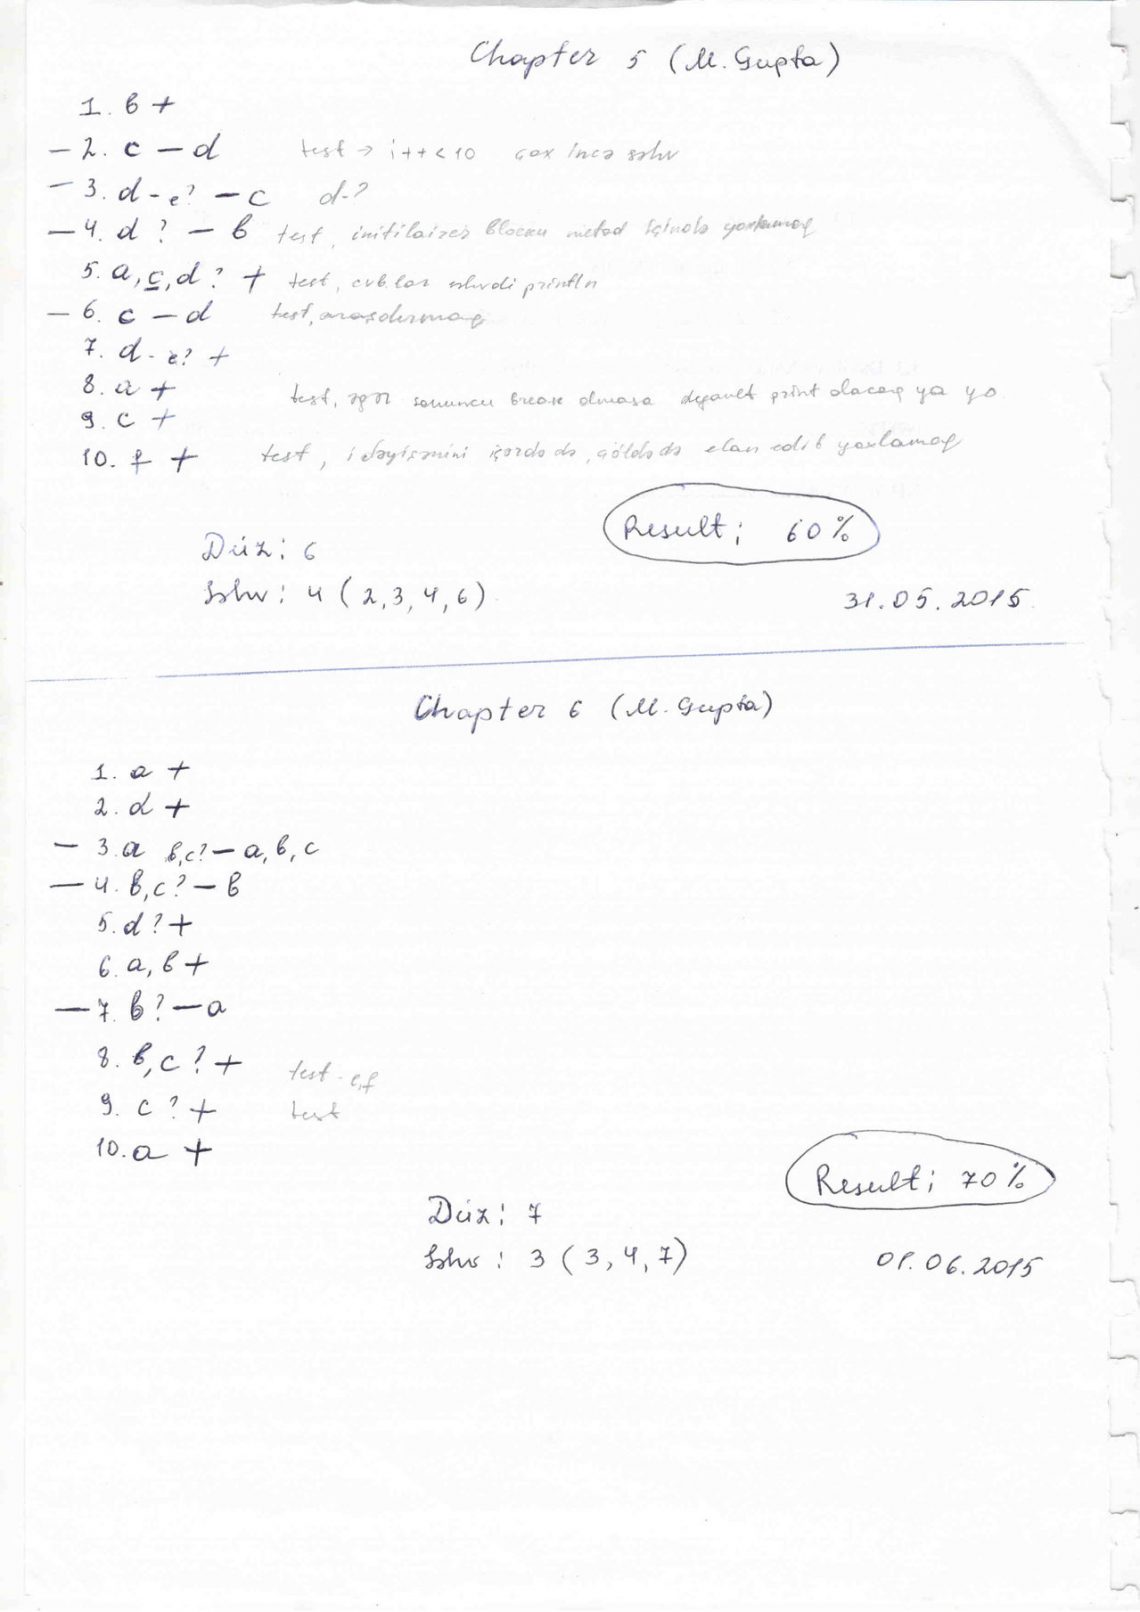 Chapter 5 (M. Gupta)
1. b +
– 2. c – d test → i++<10 çox incə səhv
– 3. d - e? – c d-?
– 4. d ? – b test, metod
5. a, c, d ? + test, println
– 6. c – d test, araşdırmaq
7. d - e? +
8. a + test, əgər sonuncu break olmasa default print olacaq ya yo
9. c +
10. f + test, i dəyişənini içərdə də, çöldə də elan edib yoxlamaq
Düz: 6
Result: 60%
Səhv: 4 (2,3,4,6)
31.05.2015
Chapter 6 (M. Gupta)
1. a +
2. d +
– 3. a b,c? – a, b, c
– 4. b,c? – b
5. d ? +
6. a, b +
– 7. b ? – a
8. b,c ? + test - e,f
9. c ? + test
10. a +
Result: 70%
Düz: 7
Səhv : 3 (3,4,7)
01.06.2015